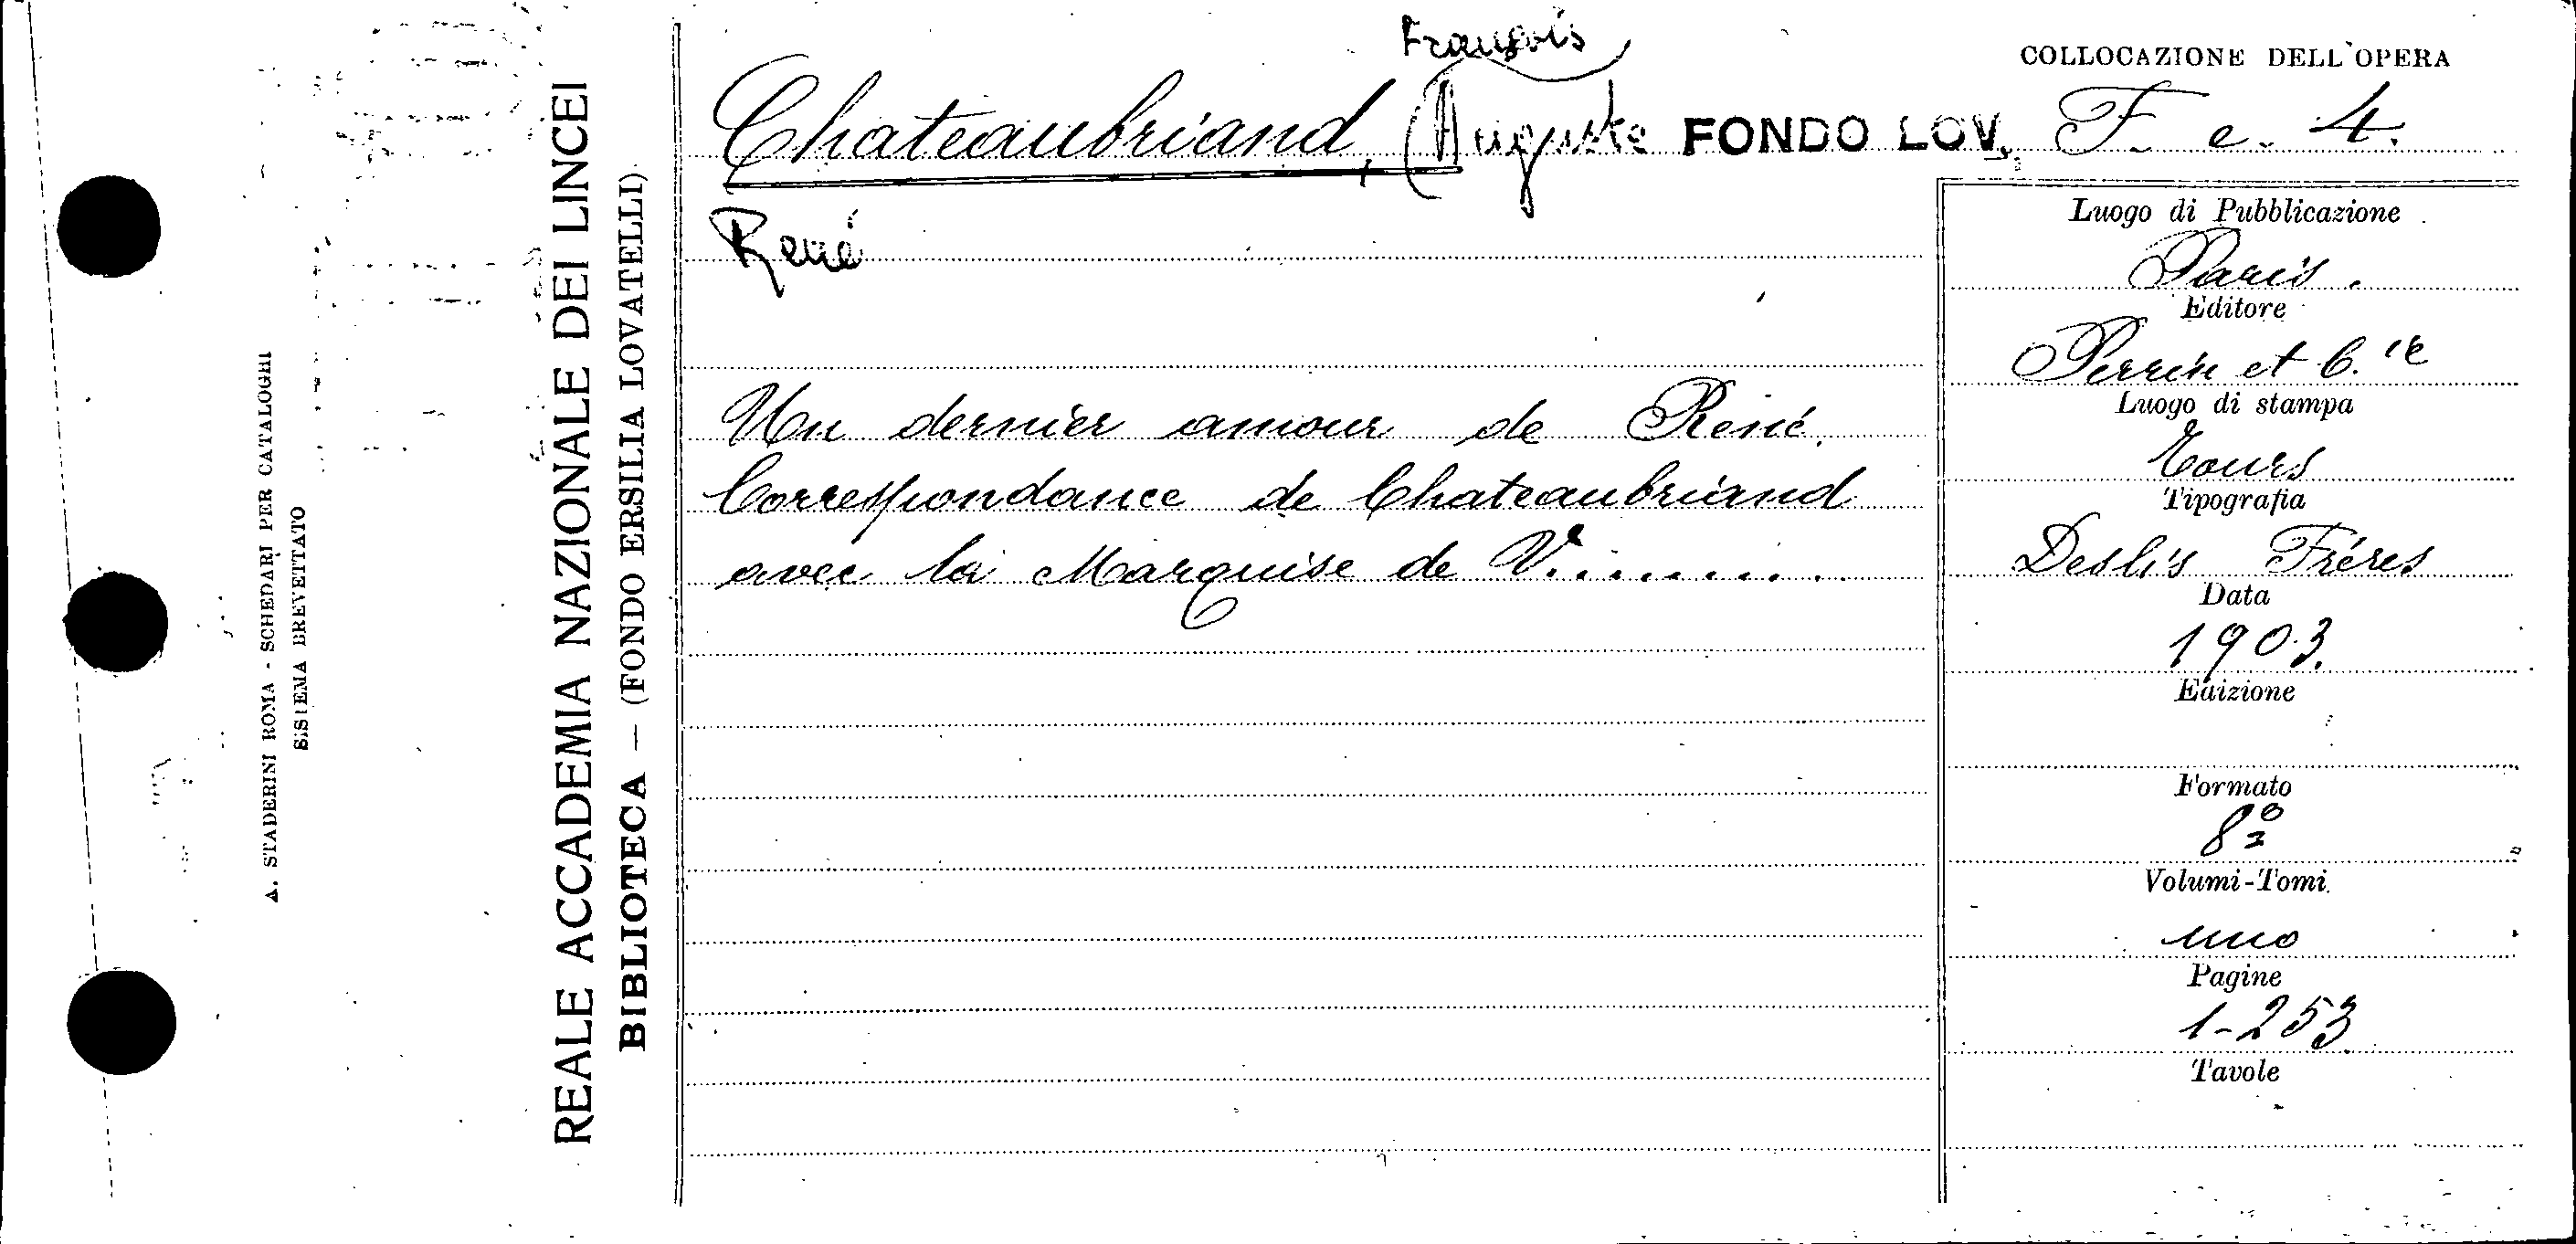 A. STADERINI ROMA - SCHEDARI PER CATALOGHI
SISTEMA BREVETTATO
REALE ACCADEMIA NAZIONALE DEI LINCEI
BIBLIOTECA — (FONDO ERSILIA LOVATELLI)
François
Chateaubriand, (Auguste
René
Un dernier amour de René.
Correspondance de Chateaubriand
avec la Marquise de V........
COLLOCAZIONE DELL'OPERA
FONDO LOV. F. e. 4.
Luogo di Pubblicazione
Paris.
Editore
Perrin et C.ie
Luogo di stampa
Tours
Tipografia
Deslis Fréres
Data
1903.
Edizione
Formato
8º
Volumi-Tomi
uno
Pagine
1-253
Tavole